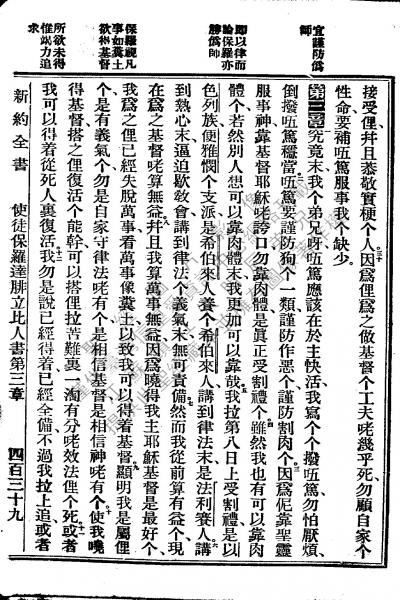 宜謹防僞
師
即以律而
論保羅亦
勝僞師
保羅視凡
事如糞土
欲得基督
所欲未得
惟竭力追
求
接受俚幷且恭敬實梗个人因爲俚爲之做基督个工夫咾幾乎死勿顧自家个
性命要補㕶篤服事我个缺少
第三章究竟末我个弟兄呀㕶篤應該在於主快活我寫个个撥㕶篤勿怕厭煩
倒撥㕶篤穩當㕶篤要謹防狗个一類謹防作惡个謹防割肉个因爲伲靠聖靈
服事神靠基督耶穌咾誇口勿靠肉體是眞正受割禮个雖然我也有可以靠肉
體个若然別人想可以靠肉體末我更加可以靠哉我拉第八日上受割禮是以
色列族便雅憫个支派是希伯來人養个希伯來人講到律法末是法利賽人講
到熱心末逼迫敎會講到律法个義氣末無可責備然而我從前算有益个現
在爲之基督咾算無益幷且我算萬事無益因爲曉得我主耶穌基督是最好个
我爲之俚已經失脫萬事看萬事像糞土以致我可以得着基督顯明我是屬俚
个是有義氣个勿是自家守律法咾有个是相信基督是相信神咾有个使我曉
得基督搭之俚復活个能幹可以搭俚拉苦難裏一淘有分咾效法俚个死或者
我可以得着從死人裏復活我勿是說已經得着已經全備不過我拉上追或者
新約全書　使徒保羅達腓立比人書第三章　四百三十九